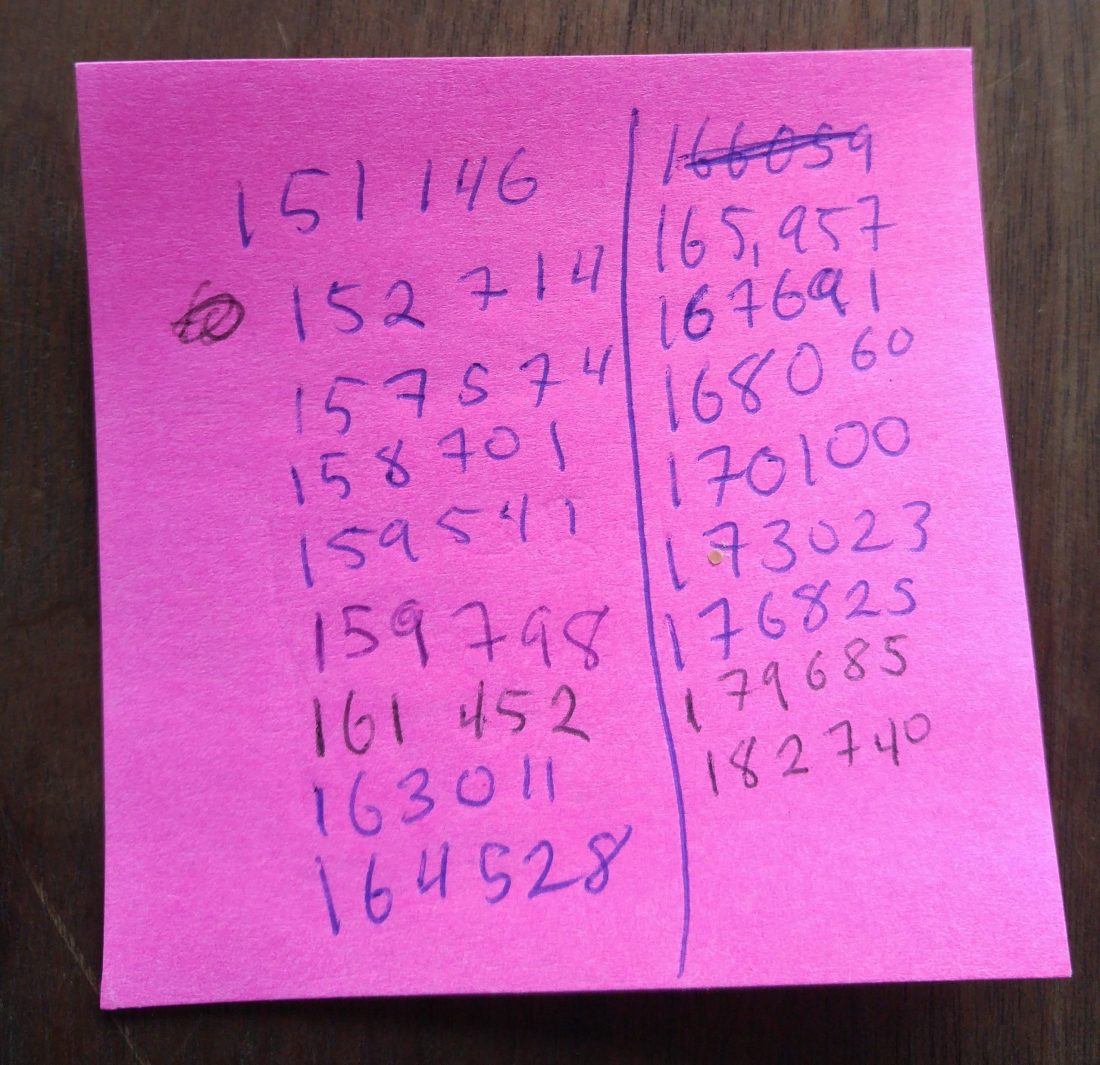 151 146
152 714
157574
158 701
159541
159798
161 452
163011
164528
166059
165,957
167691
168060
170100
173023
176825
179685
182740